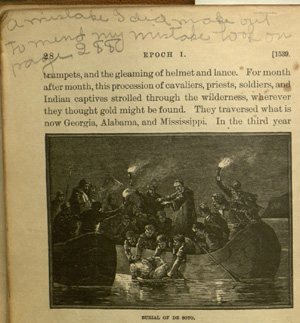 a mistake I did make but
to mend my mistake look on
page 280
28 EPOCH I. [1539.
trumpets, and the gleaming of helmet and lance. For month
after month, this procession of cavaliers, priests, soldiers, and
Indian captives strolled through the wilderness, wherever
they thought gold might be found. They traversed what is
now Georgia, Alabama, and Mississippi. In the third year
BURIAL OF DE SOTO.